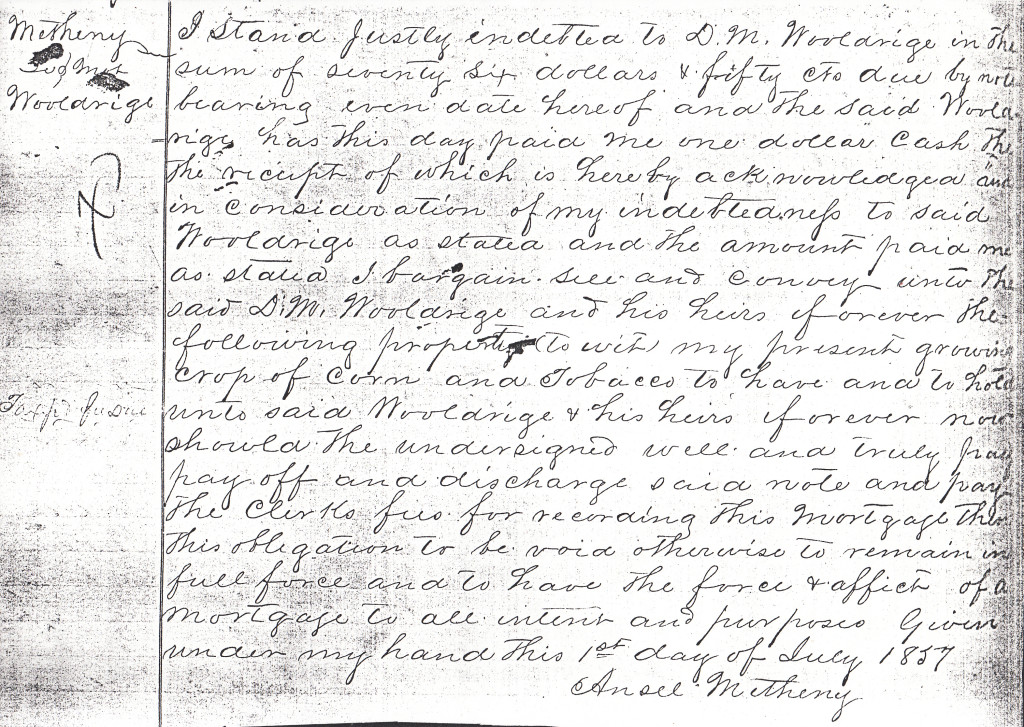 Metheny
To Mor
Wooldrige
I Stand Justly indebted to D. M. Wooldrige in the
sum of seventy six dollars & fifty cts due by note
bearing even date hereof and the said Woold
rige has this day paid me one dollar Cash the
the reciept of which is hereby acknowledged and
in consideration of my indebtedness to said
Wooldrige as stated and the amount paid me
as stated I bargain sell and convey unto the
said D. M. Wooldrige and his heirs forever the
following property (to wit) my present growing
crop of Corn and Tobacco to have and to hold
unto said Wooldrige & his heirs forever now
should the undersigned well and truly pay
pay off and discharge said note and pay
the Clerks fees for recording this Mortgage then
this obligation to be void otherwise to remain in
full force and to have the force & affict of a
mortgage to all intent and purposes Given
under my hand this 1st day of July 1857
Ansel Metheny